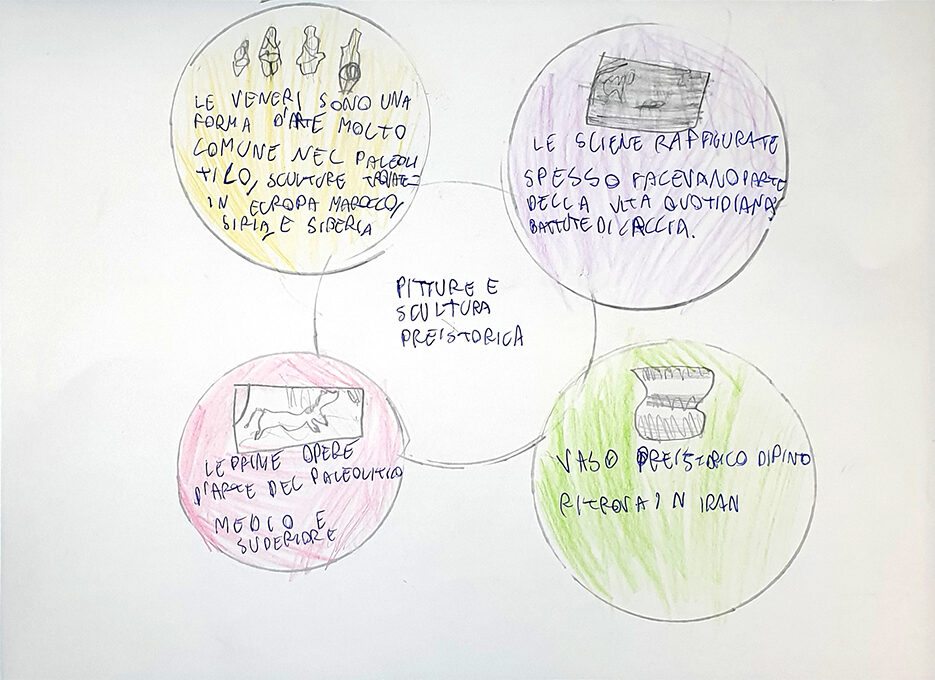 LE VENERI SONO UNA
FORMA D'ARTE MOLTO
COMUNE NEL PALEOLI
TILO, SCULTURE TROVATE
IN EUROPA MAROCCO,
SIRIA, E SIBERIA
LE SCIENE RAFFIGURATE
SPESSO FACEVANO PARTE
DELLA VITA QUOTIDIANA,
BATTUTE DI CACCIA.
PITTURE E
SCULTURA
PREISTORICA
LE PRIME OPERE
D'ARTE DEL PALEOLITICO
MEDIO E
SUPERIORE
VASO PREISTORICO DIPINO
RITROVA IN IRAN